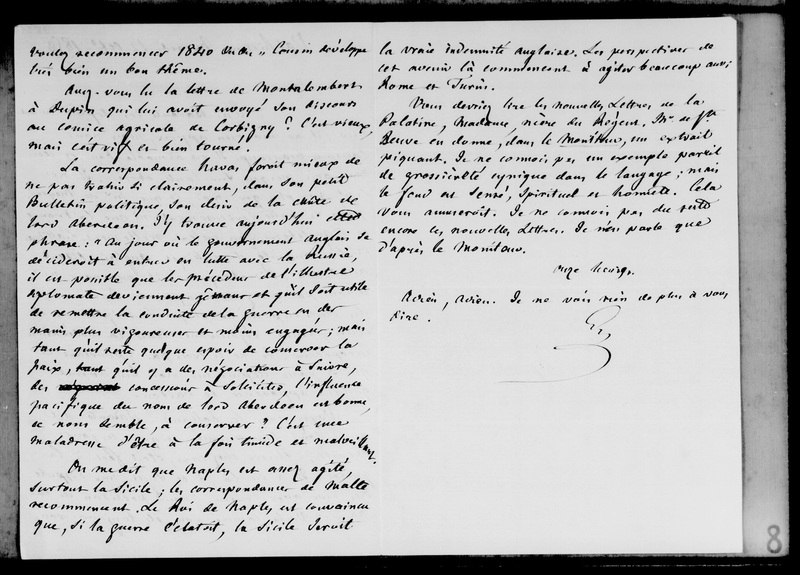 voulez recommencer 1840 "Cousin développe
très bien un bon thême.
Avez-vous lu la lettre de Montalembert
à Dupin qui lui avoit envoyé son discours
au comice agricole de Corbigny ? C'est vieux,
mais c'est vif et bien tourné.
La correspondance havas feroit mieux de
ne pas trahir si clairement, dans son petit
Bulletin politique, son desir de la chûte de
lord Aberdeen. J'y trouve aujourd'hui cette
phrase : "Au jour où le gouvernement anglais se
décideroit à entrer en lutte avec la Russie,
il est possible que les précédens de l'illustre
diplomate deviennent gênans et qu'il soit utile
de remettre la conduite de la guerre en des
mains plus vigoureuses et moins engagées ; mais
tant qu'il reste quelque espoir de conserver la
paix, tant qu'il y a des négociations à suivre,
des concessions à solliciter, l'influence
pacifique du nom de lord Aberdeen est bonne,
ce nous semble, à conserver ? C'est une
maladresse d'être à la fois timide et malveillant.
On me dit que Naples est assez agité,
surtout la Sicile ; les correspondances de Malte
recommencent. Le Roi de Naples est convaincu
que, si la guerre éclatoit, la Sicile seroit
la vraie indemnité anglaise. Les perspectives de
cet avenir là commencent à agiter beaucoup aussi
Rome et Turin.
Vous devriez lire les nouvelles Lettres de la
Palatine, Madame, mère du Régent. Mr. de Ste
Beuve en donne, dans le Moniteur, un extrait
piquant. Je ne connois pas un exemple pareil
de grossièreté cynique dans le langage ; mais
le fond est sensé, spirituel et honnête. Cela
vous amuseroit. Je ne connois pas du reste
encore ces nouvelles Lettres. Je n'en parle que
d'après le Moniteur.
onze heures.
Adieu, Adieu. Je ne vois rien de plus à vous
dire.
G.
8